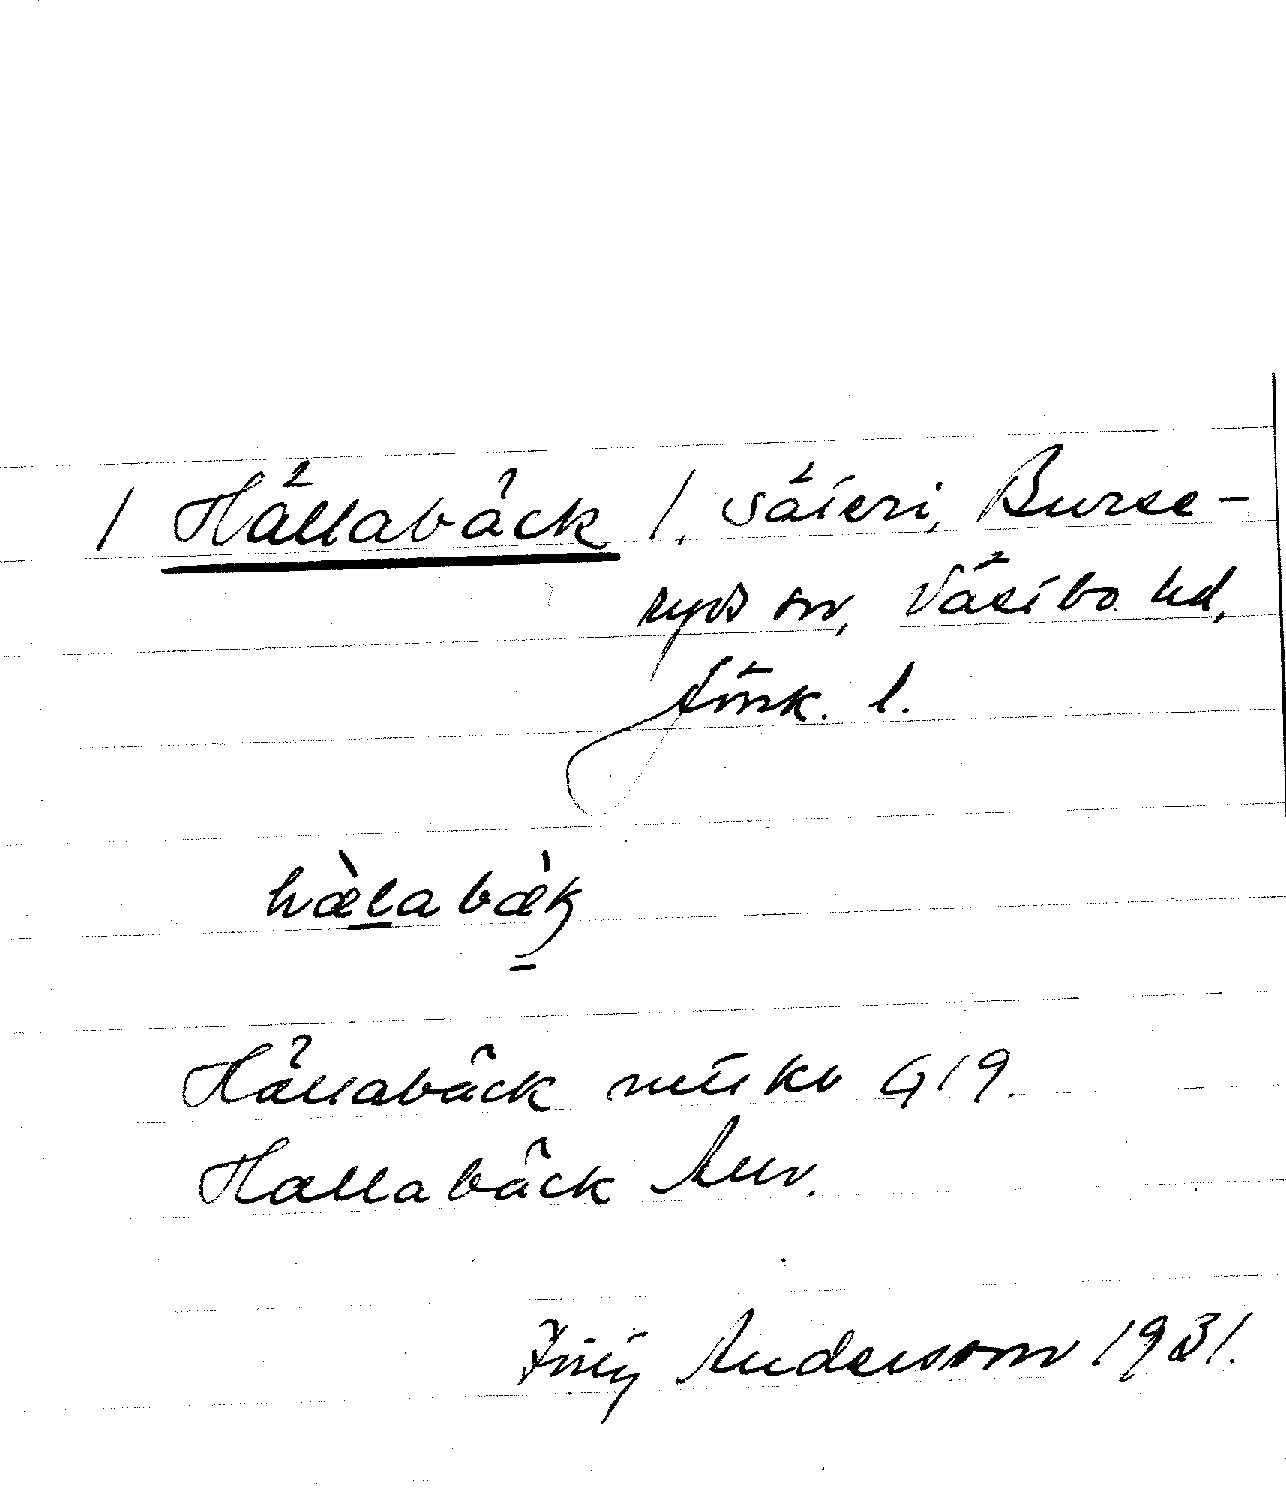 / Hällabäck /. Säteri, Burse-
ryds sn, Västbo hd,
Jönk. l.
hælabæk
Hällabäck mtlkb G19.
Hallabäck Auv.
Anderson 1931.